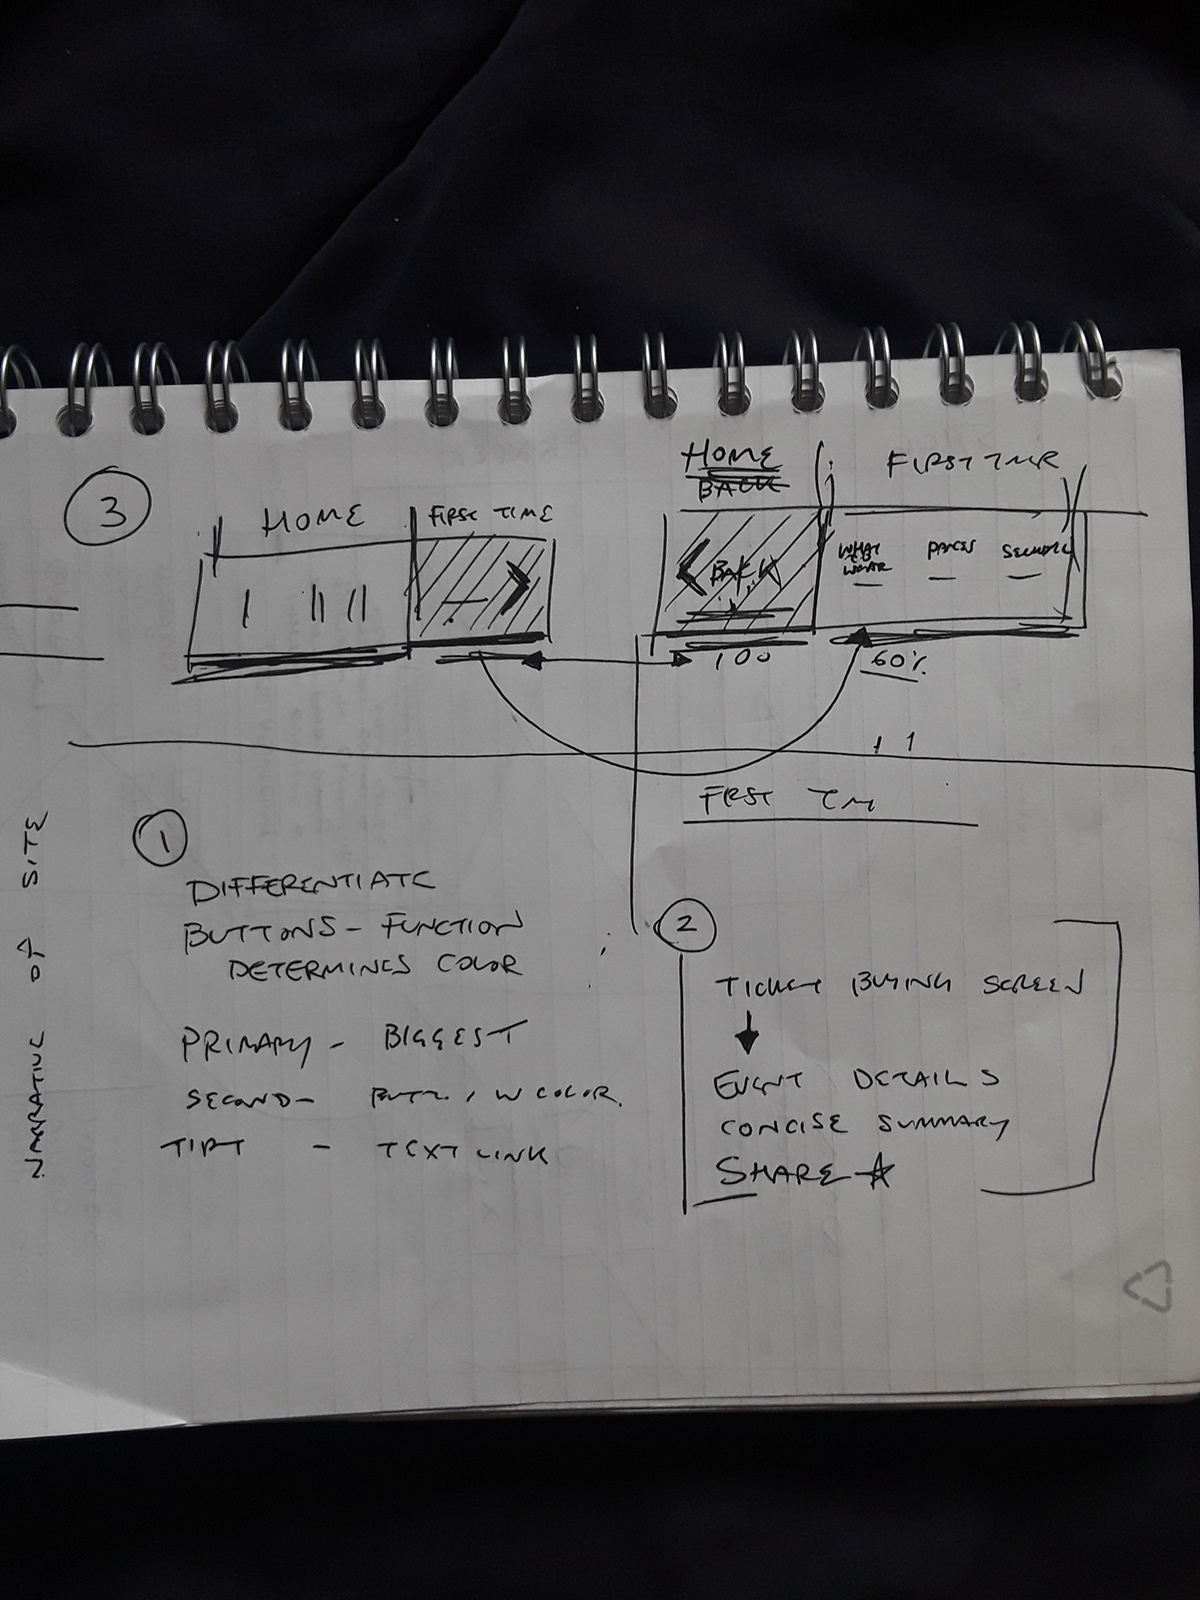 3
HOME FIRST TIME
HOME
BACK
FIRST TMR
BACK
WHAT
TO
WEAR
PRICES
100
60%
FRST TM
NARRATIVE OF SITE
1
DIFFERENTIATE
BUTTONS - FUNCTION
DETERMINES COLOR
PRIMARY - BIGGEST
SECOND - BUTT. / W COLOR.
- TEXT LINK
2
TICKET BUYING SCREEN
EVENT DETAILS
CONCISE SUMMARY
SHARE